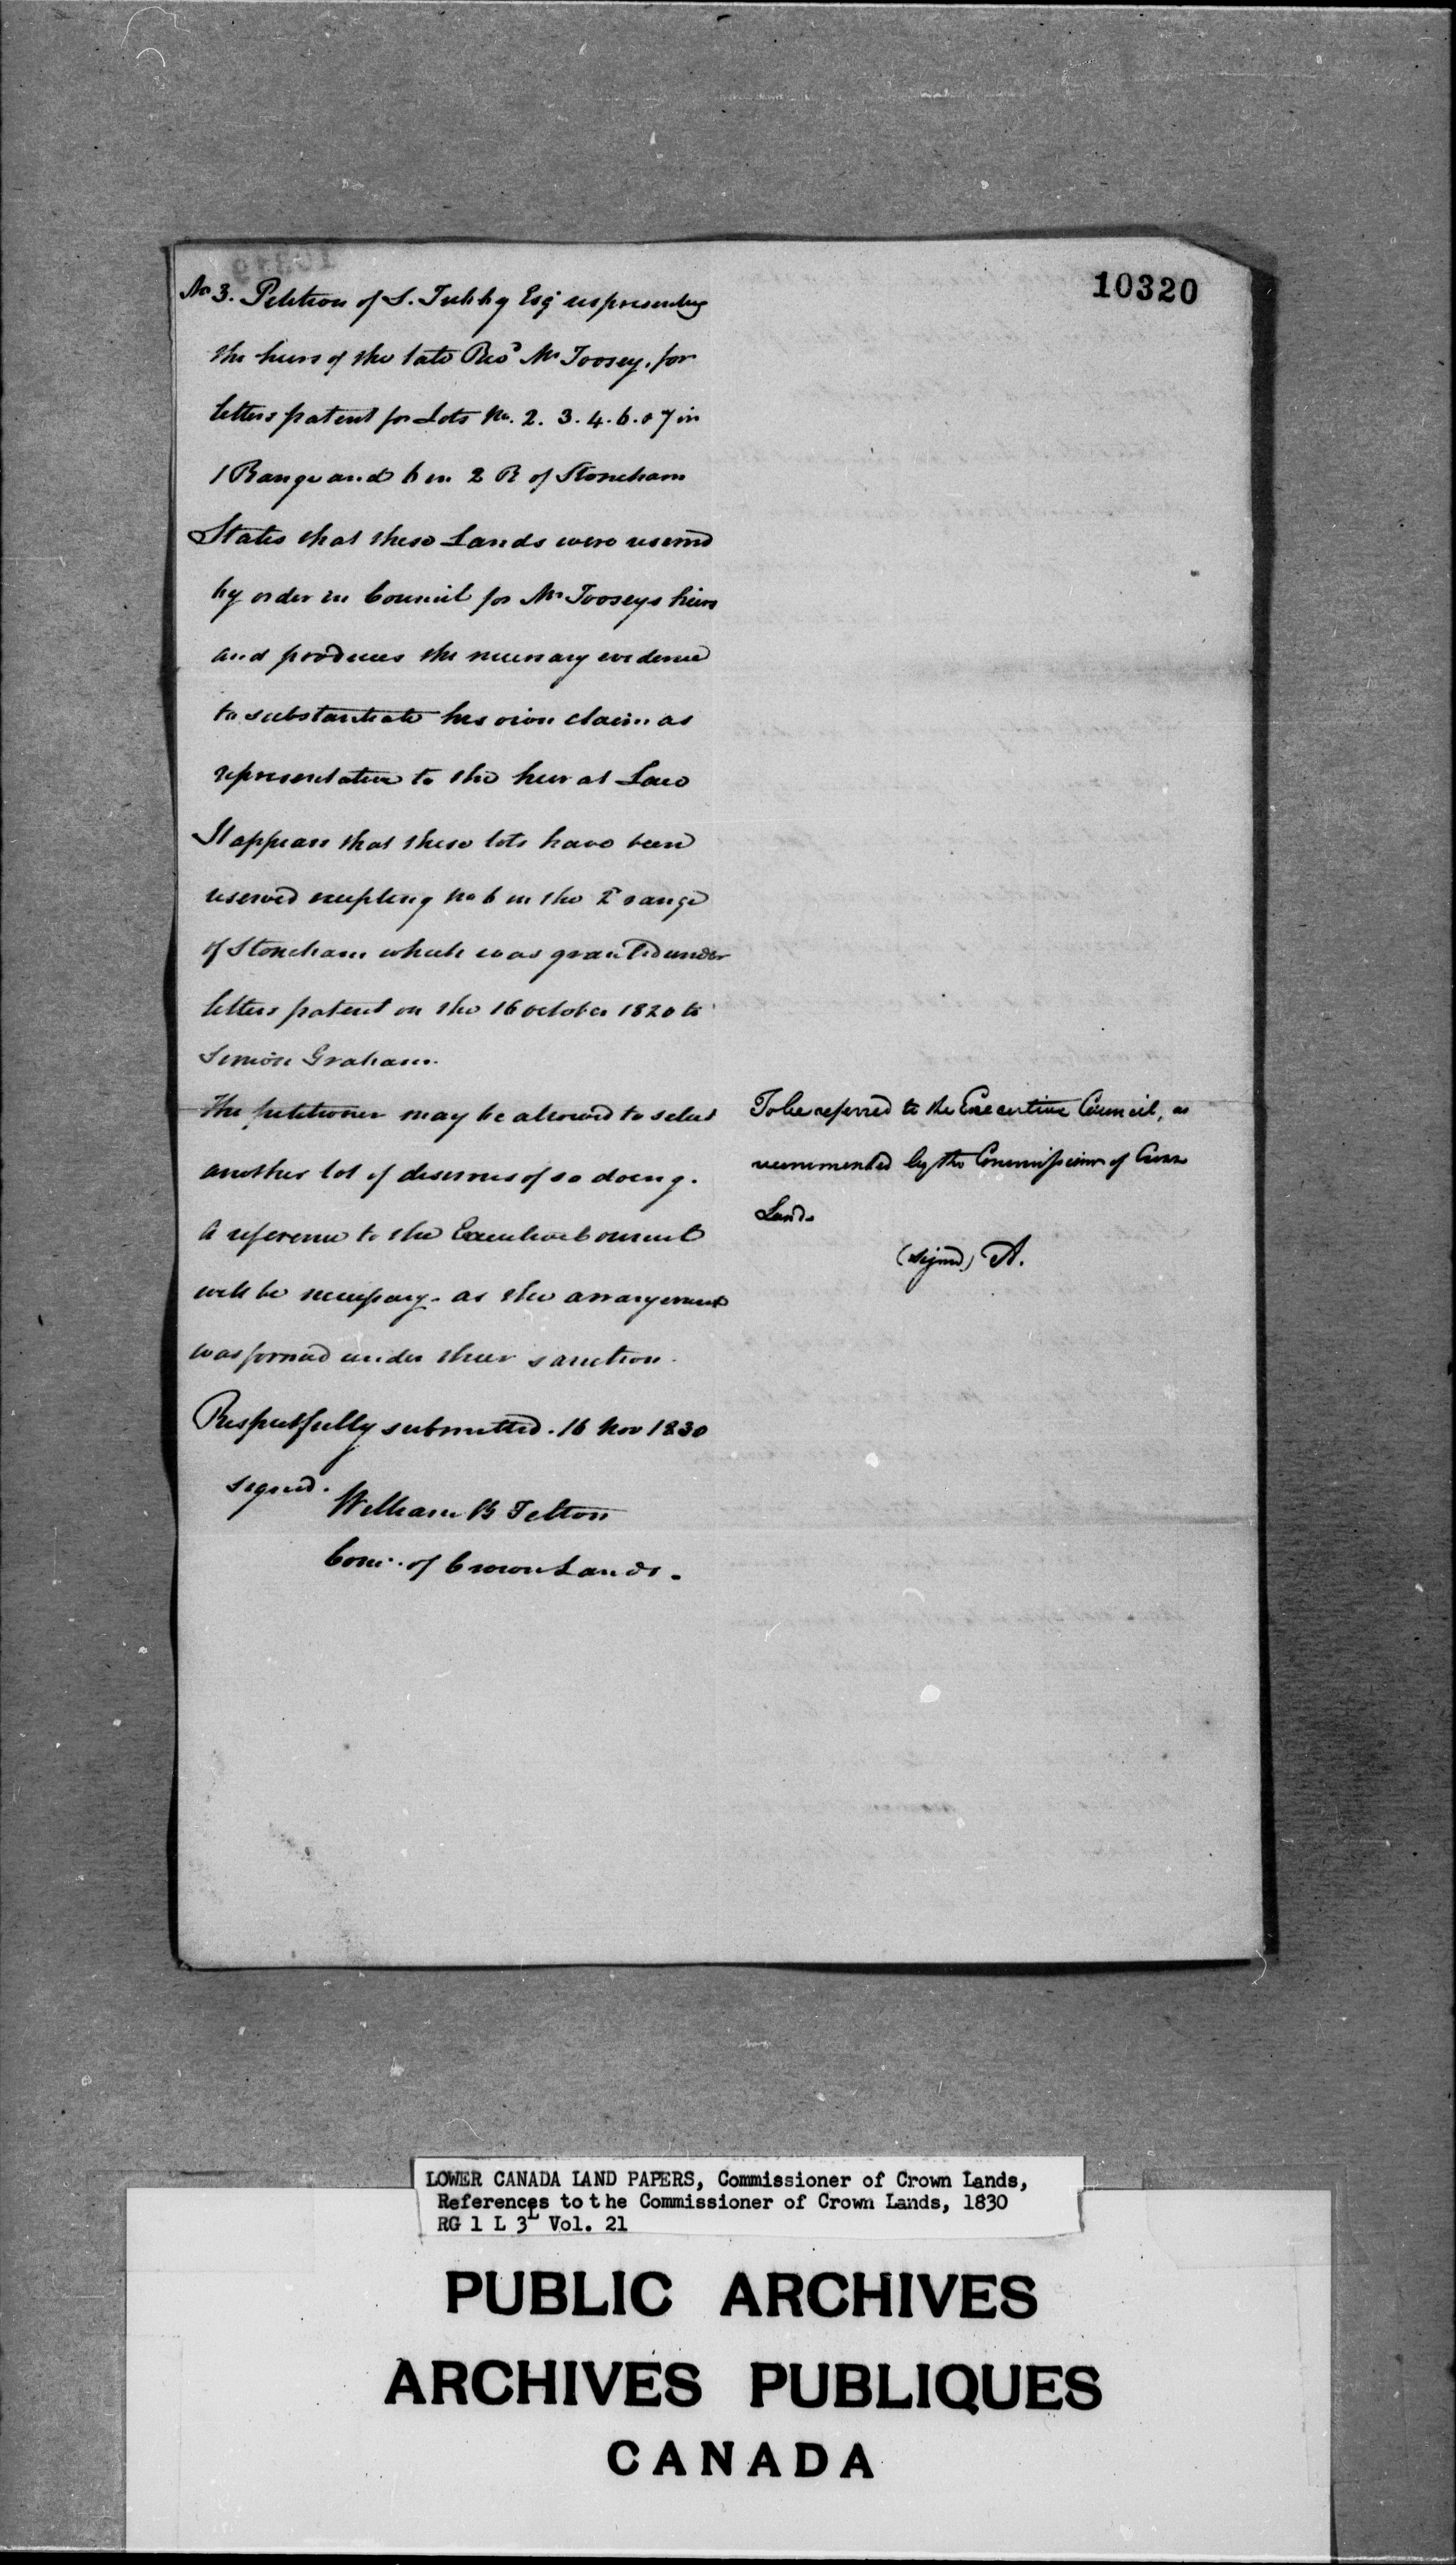 10320
No 3. Petition of S. Tubby Esqr representing
the heirs of the late Revd Mr Toosey, for
letters patent for Lots No. 2. 3. 4. 6. & 7 in
1 Range and 6 in 2 R of Stoneham
States that these Lands were reserved
by order in Council for Mr Tooseys heirs
and produces the necessary evidence
to substantiate his own claim as
representative to the heir at Law
It appears that these lots have been
reserved excepting No 6 in the 2d range
of Stoneham which was granted under
letters patent on the 16 October 1820 to
Simon Graham.
The petitioner may be allowed to select
another lot if desirous of so doing.
A reference to the Executive Council
will be necessary. as the arrangement
was formed under their sanction.
Respectfully submitted. 16 Nov 1830
signed.
William B Felton
Com. of Crown Lands.
To be referred to the Executive Council, as
recommended by the Commissioner of Crown
Lands
(signed) A.
LOWER CANADA LAND PAPERS, Commissioner of Crown Lands,
References to the Commissioner of Crown Lands, 1830
RG 1 L 3L Vol. 21
PUBLIC ARCHIVES
ARCHIVES PUBLIQUES
CANADA